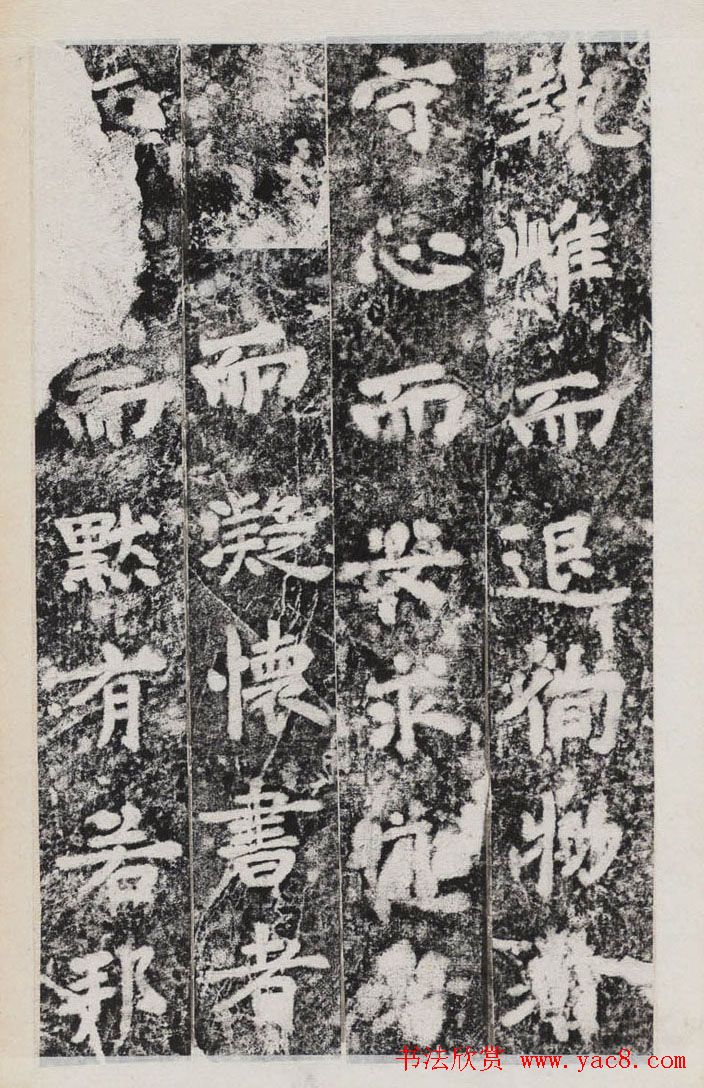 執雌而退徇物
守心而安求
而凝懷書者
而默有若邪
书法欣赏 www.yac8.com